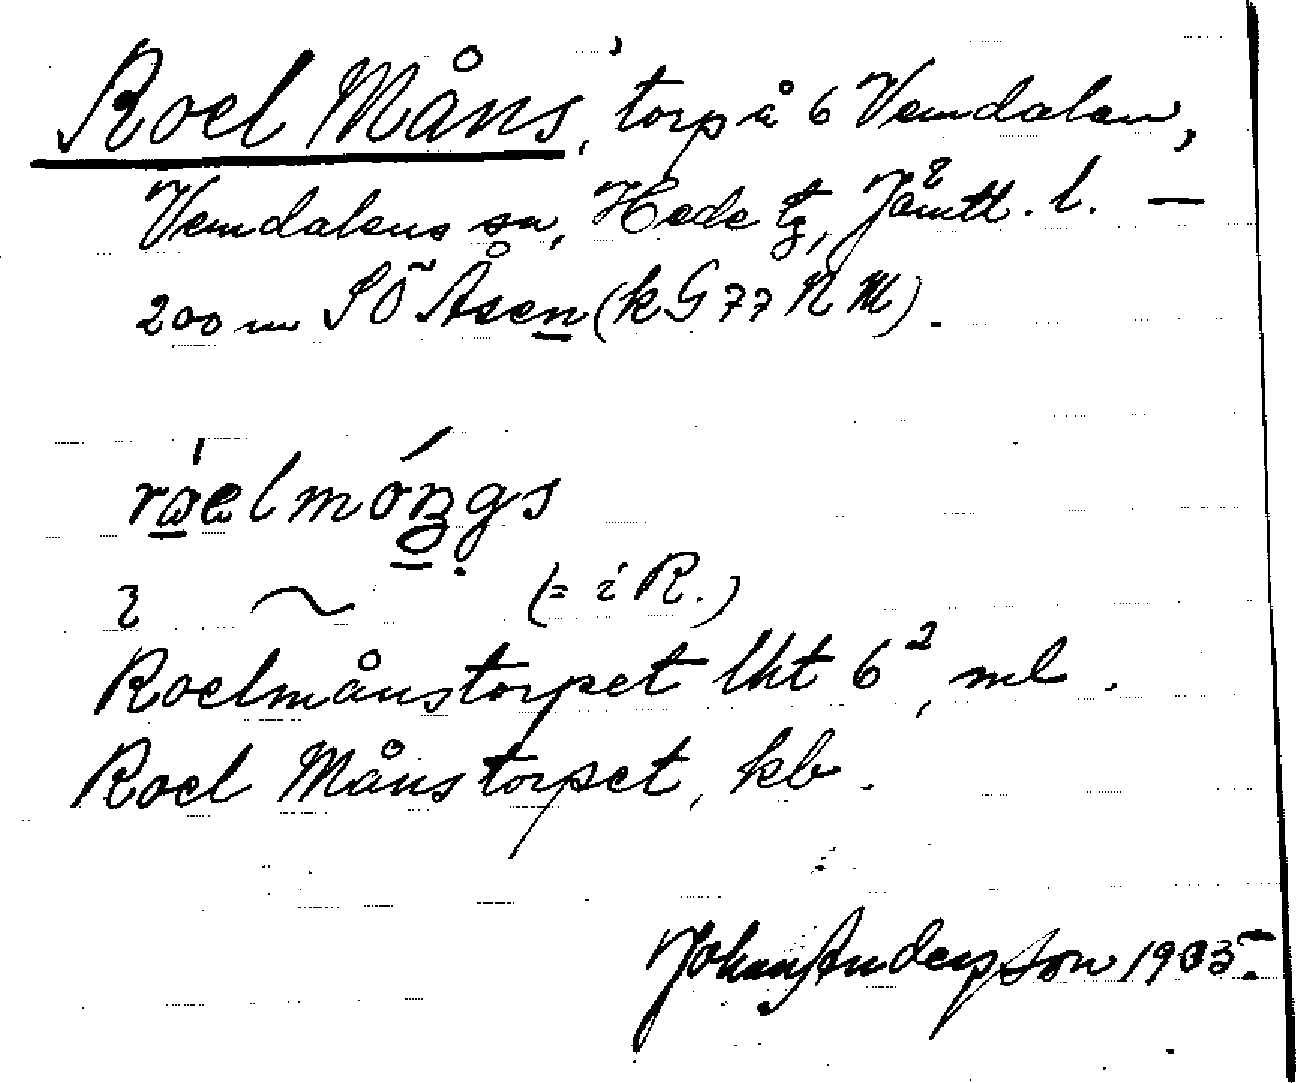 Roel Måns, torp å 6 Vemdalen,
Vemdalens sn, Hede tg, Jämtl. l. —
200 m SÖ Åsen (k G 77 N M).
råelmóŋgs
2 ~ (= i R.)
Roelmånstorpet lht 6², ml.
Roel Månstorpet, kb.
Johan Anderson 1935.